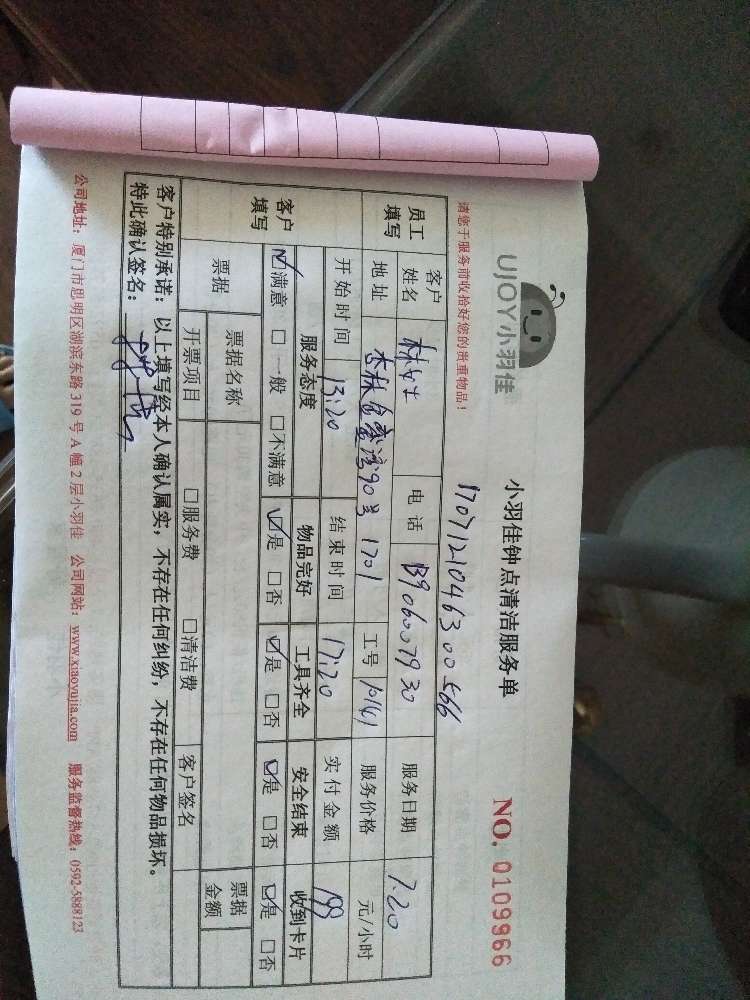 UJOY小羽佳
小羽佳钟点清洁服务单
NO. 0109966
请您于服务前收拾好您的贵重物品!
1707121046300566
员工填写
客户姓名 林女士 电话 13906007930 服务日期 7.20
地址 杏林台湾90号1701 工号 10141 服务价格 元/小时
开始时间 13:20 结束时间 17:20 实付金额 199
客户填写
服务态度 物品完好 工具齐全 安全结束 收到卡片
☑满意 □一般 □不满意 ☑是 □否 ☑是 □否 ☑是 □否 ☑是 □否
票据 票据名称 票据金额
开票项目 □服务费 □清洁费 客户签名
客户特别承诺：以上填写经本人确认属实，不存在任何纠纷，不存在任何物品损坏。
特此确认签名：
公司地址：厦门市思明区湖滨东路319号A幢2层小羽佳 公司网站：www.xiaoyujia.com 服务监督热线：0592-5888123